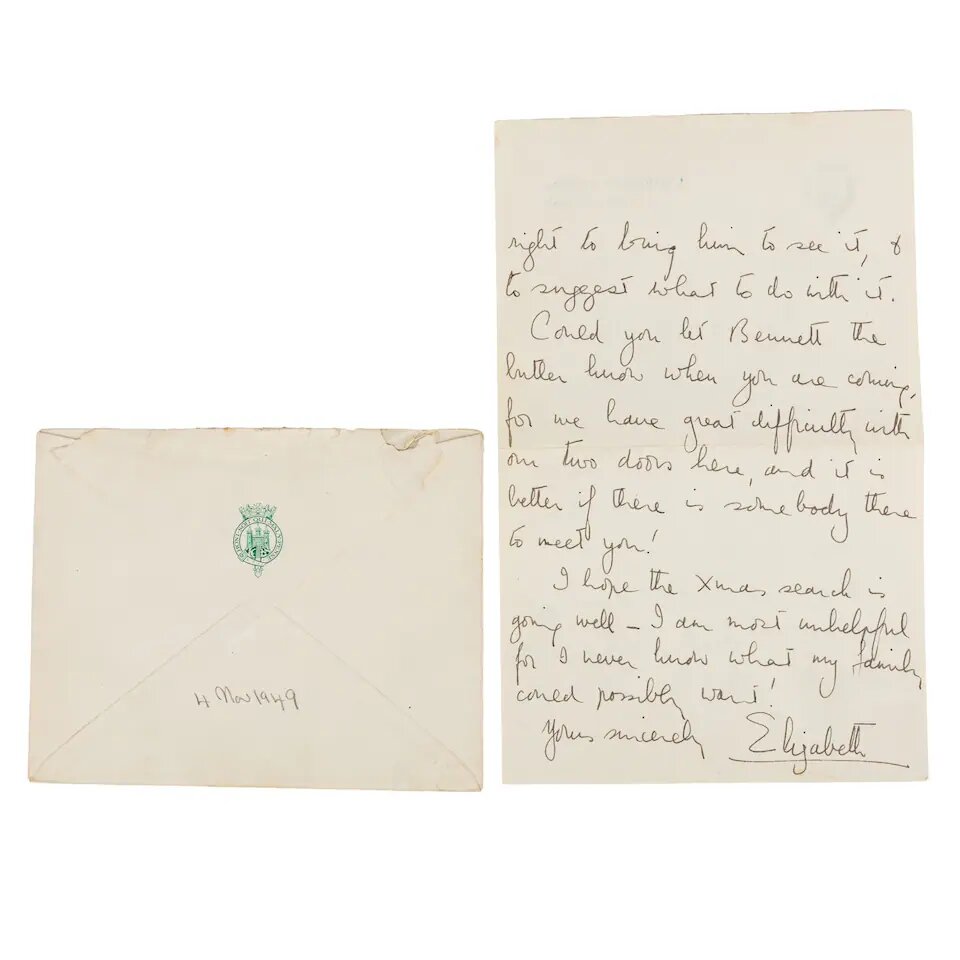 4 Nov 1949
right to bring him to see it, &
to suggest what to do with it.
Could you let Bennett the
butler know when you are coming,
for we have great difficulty with
our two doors here, and it is
better if there is somebody there
to meet you!
I hope the Xmas search is
going well – I am most unhelpful
for I never know what my family
could possibly want!
Yours sincerely Elizabeth